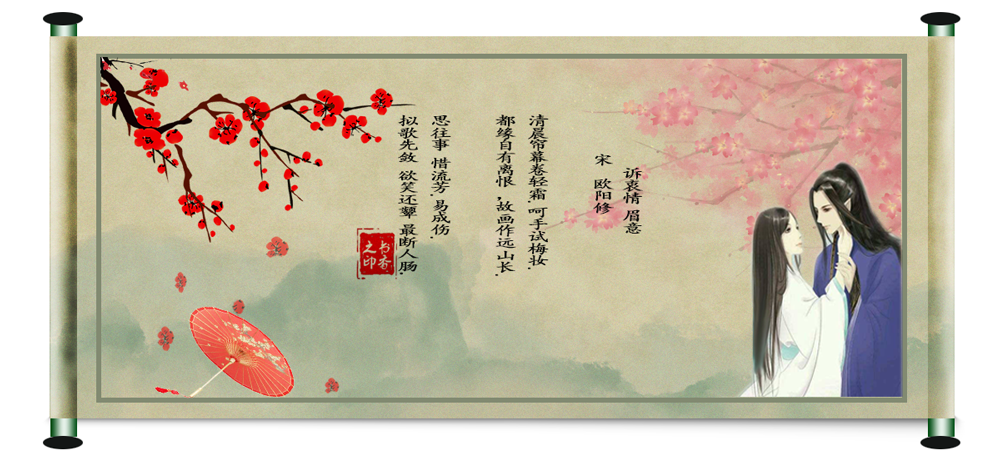 诉衷情 眉意
宋 欧阳修
清晨帘幕卷轻霜.呵手试梅妆.
都缘自有离恨 ,故画作远山长.
思往事 惜流芳.易成伤.
拟歌先敛 欲笑还颦 最断人肠.
书香之印